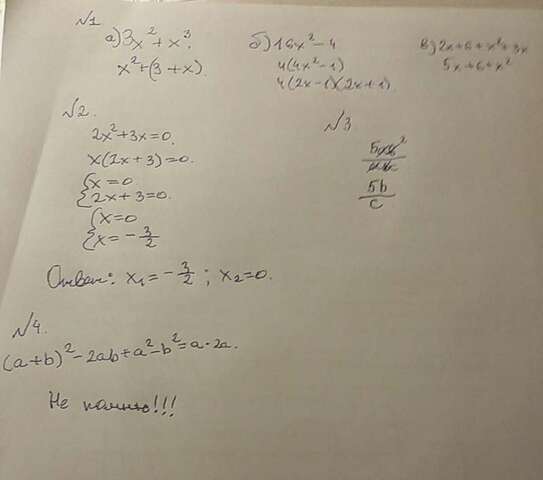 №1
а) 3x² + x³.
x² + (3 + x).
б) 16x² − 4
4(4x² − 1)
4(2x − 1)(2x + 1).
в) 2x + 6 + x² + 3x
5x + 6 + x²
№2.
2x² + 3x = 0.
x(2x + 3) = 0.
{x = 0
{2x + 3 = 0.
{x = 0
{x = −3/2
Ответ: x₁ = −3/2 ; x₂ = 0.
№3
5b/c
№4.
(a + b)² − 2ab + a² − b² = a · 2a.
Не помню!!!